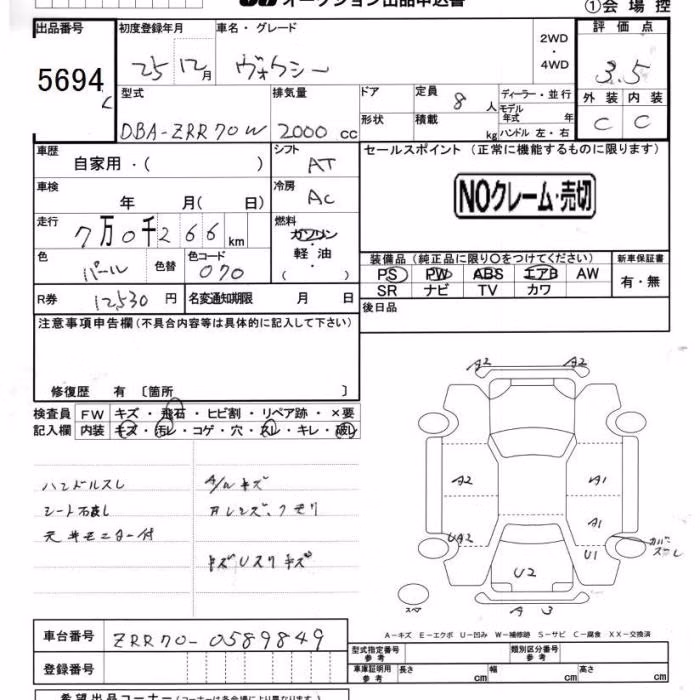 オークション出品申込書 ①会場控
出品番号 初度登録年月 車名・グレード 2WD・4WD 評価点
5694 25 12月 ヴォクシー 3.5
型式 排気量 ドア 定員 8人 ディーラー・並行 外装 内装
DBA-ZRR70W 2000cc 形状 積載 kg モデル年式 年 C C
ハンドル 左・右
車歴 シフト セールスポイント（正常に機能するものに限ります）
自家用・（ ） AT
車検 冷房 NOクレーム・売切
年 月（ 日） AC
走行 燃料
7万0千266km ガソリン・軽油（ ）
色 色替 色コード 装備品（純正品に限り〇をつけてください） 新車保証書
パール 070 PS PW ABS エアB AW 有・無
SR ナビ TV カワ
R券 12530円 名変通知期限 月 日 後日品
注意事項申告欄（不具合内容等は具体的に記入して下さい）
修復歴 有〔箇所 〕
検査員 FW キズ・飛石・ヒビ割・リペア跡・×要
記入欄 内装 キズ・汚レ・コゲ・穴・スレ・キレ・破レ
A2 A2
ハンドルスレ A/Wキズ
天井モニター付
A2 A1
A1
UA2 U1
U2
A 3
A－キズ E－エクボ U－凹み W－補修跡 S－サビ C－腐食 XX－交換済
車台番号 ZRR70-0589849
型式指定番号 参考 類別区分番号 参考
登録番号 車庫証明用 参考 長さ cm 幅 cm 高さ cm
希望出品コーナー（コーナーは各会場により異なります。）